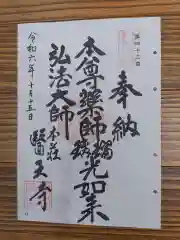 奉納
本尊藥師瑠璃光如来
弘法大師
本荘
醫王寺
令和六年十月十五日